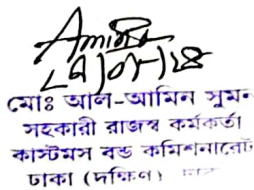 মোঃ আল-আমিন সুমন
সহকারী রাজস্ব কর্মকর্তা
কাস্টমস বন্ড কমিশনারেট
ঢাকা (দক্ষিণ)